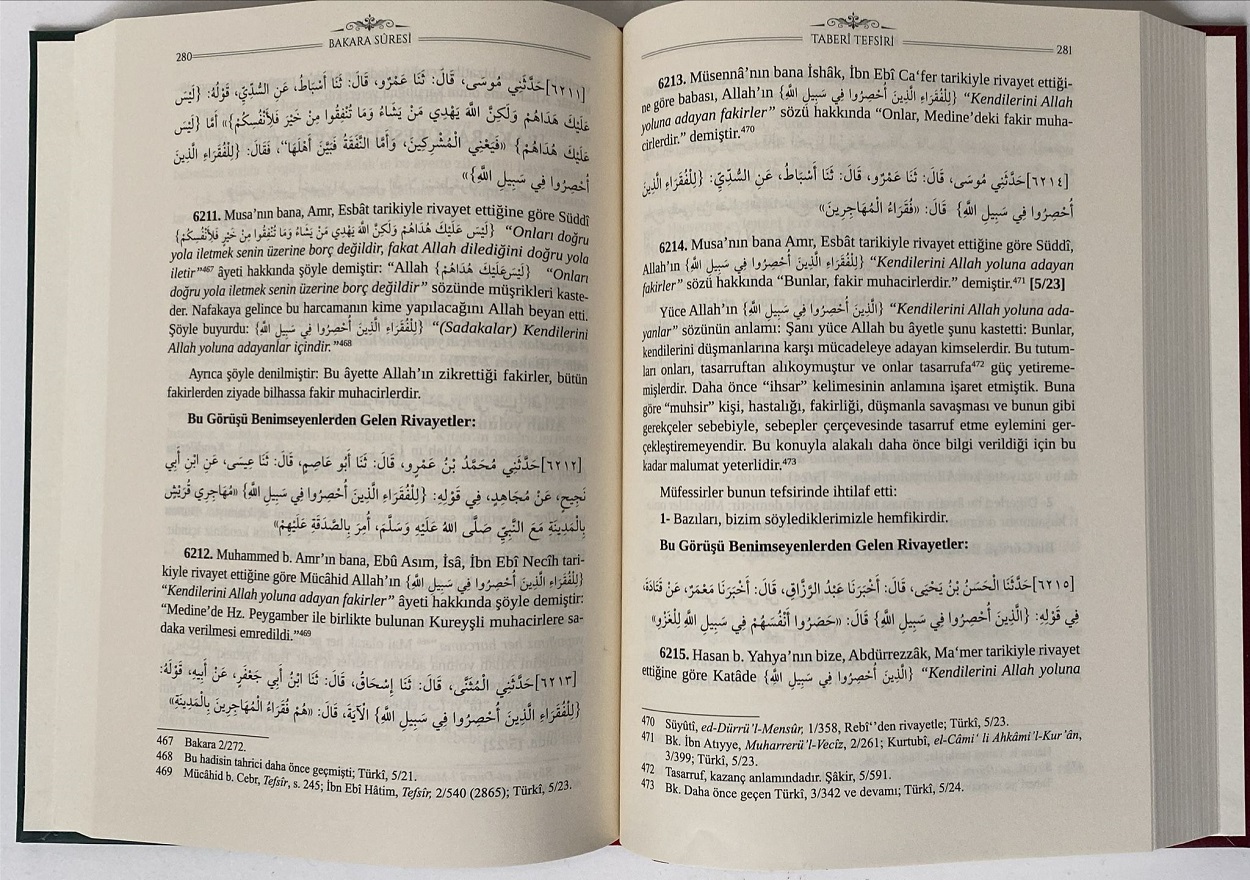 280
BAKARA SÛRESİ
[٦٢١١]حَدَّثَنِي مُوسَى، قَالَ: ثَنَا عَمْرٌو، قَالَ: ثَنَا أَسْبَاطُ، عَنِ السُّدِّيِّ، قَوْلُهُ: {لَيْسَ
عَلَيْكَ هُدَاهُمْ وَلَكِنَّ اللَّهَ يَهْدِي مَنْ يَشَاءُ وَمَا تُنْفِقُوا مِنْ خَيْرٍ فَلِأَنْفُسِكُمْ}» أَمَّا {لَيْسَ
عَلَيْكَ هُدَاهُمْ} «فَيَعْنِي الْمُشْرِكِينَ، وَأَمَّا النَّفَقَةُ فَبَيَّنَ أَهْلَهَا“، فَقَالَ: {لِلْفُقَرَاءِ الَّذِينَ
أُحْصِرُوا فِي سَبِيلِ اللَّهِ}»
6211. Musa’nın bana, Amr, Esbât tarikiyle rivayet ettiğine göre Süddî
{لَيْسَ عَلَيْكَ هُدَاهُمْ وَلَكِنَّ اللَّهَ يَهْدِي مَنْ يَشَاءُ وَمَا تُنْفِقُوا مِنْ خَيْرٍ فَلِأَنْفُسِكُمْ} “Onları doğru
yola iletmek senin üzerine borç değildir, fakat Allah dilediğini doğru yola
iletir”⁴⁶⁷ âyeti hakkında şöyle demiştir: “Allah {لَيْسَ عَلَيْكَ هُدَاهُمْ} “Onları
doğru yola iletmek senin üzerine borç değildir” sözünde müşrikleri kaste-
der. Nafakaya gelince bu harcamanın kime yapılacağını Allah beyan etti.
Şöyle buyurdu: {لِلْفُقَرَاءِ الَّذِينَ أُحْصِرُوا فِي سَبِيلِ اللَّهِ} “(Sadakalar) Kendilerini
Allah yoluna adayanlar içindir.”⁴⁶⁸
Ayrıca şöyle denilmiştir: Bu âyette Allah’ın zikrettiği fakirler, bütün
fakirlerden ziyade bilhassa fakir muhacirlerdir.
Bu Görüşü Benimseyenlerden Gelen Rivayetler:
[٦٢١٢]حَدَّثَنِي مُحَمَّدُ بْنُ عَمْرٍو، قَالَ: ثَنَا أَبُو عَاصِمٍ، قَالَ: ثَنَا عِيسَى، عَنِ ابْنِ أَبِي
نَجِيحٍ، عَنْ مُجَاهِدٍ، فِي قَوْلِهِ: {لِلْفُقَرَاءِ الَّذِينَ أُحْصِرُوا فِي سَبِيلِ اللَّهِ} «مُهَاجِرِي قُرَيْشٍ
بِالْمَدِينَةِ مَعَ النَّبِيِّ صَلَّى اللَّهُ عَلَيْهِ وَسَلَّمَ، أُمِرَ بِالصَّدَقَةِ عَلَيْهِمْ»
6212. Muhammed b. Amr’ın bana, Ebû Asım, İsâ, İbn Ebî Necîh tari-
kiyle rivayet ettiğine göre Mücâhid Allah’ın {لِلْفُقَرَاءِ الَّذِينَ أُحْصِرُوا فِي سَبِيلِ اللَّهِ}
“Kendilerini Allah yoluna adayan fakirler” âyeti hakkında şöyle demiştir:
“Medine’de Hz. Peygamber ile birlikte bulunan Kureyşli muhacirlere sa-
daka verilmesi emredildi.”⁴⁶⁹
[٦٢١٣]حَدَّثَنِي الْمُثَنَّى، قَالَ: ثَنَا إِسْحَاقُ، قَالَ: ثَنَا ابْنُ أَبِي جَعْفَرٍ، عَنْ أَبِيهِ، قَوْلُهُ:
{لِلْفُقَرَاءِ الَّذِينَ أُحْصِرُوا فِي سَبِيلِ اللَّهِ} الْآيَةَ، قَالَ: «هُمْ فُقَرَاءُ الْمُهَاجِرِينَ بِالْمَدِينَةِ»
467 Bakara 2/272.
468 Bu hadisin tahrici daha önce geçmişti; Türkî, 5/21.
469 Mücâhid b. Cebr, Tefsîr, s. 245; İbn Ebî Hâtim, Tefsîr, 2/540 (2865); Türkî, 5/23.
TABERÎ TEFSİRİ
281
6213. Müsennâ’nın bana İshâk, İbn Ebî Ca‘fer tarikiyle rivayet ettiği-
ne göre babası, Allah’ın {لِلْفُقَرَاءِ الَّذِينَ أُحْصِرُوا فِي سَبِيلِ اللَّهِ} “Kendilerini Allah
yoluna adayan fakirler” sözü hakkında “Onlar, Medine’deki fakir muha-
cirlerdir.” demiştir.⁴⁷⁰
[٦٢١٤]حَدَّثَنِي مُوسَى، قَالَ: ثَنَا عَمْرٌو، قَالَ: ثَنَا أَسْبَاطُ، عَنِ السُّدِّيِّ: {لِلْفُقَرَاءِ الَّذِينَ
أُحْصِرُوا فِي سَبِيلِ اللَّهِ} قَالَ: «فُقَرَاءُ الْمُهَاجِرِينَ»
6214. Musa’nın bana Amr, Esbât tarikiyle rivayet ettiğine göre Süddî,
Allah’ın {لِلْفُقَرَاءِ الَّذِينَ أُحْصِرُوا فِي سَبِيلِ اللَّهِ} “Kendilerini Allah yoluna adayan
fakirler” sözü hakkında “Bunlar, fakir muhacirlerdir.” demiştir.⁴⁷¹ [5/23]
Yüce Allah’ın {الَّذِينَ أُحْصِرُوا فِي سَبِيلِ اللَّهِ} “Kendilerini Allah yoluna ada-
yanlar” sözünün anlamı: Şanı yüce Allah bu âyetle şunu kastetti: Bunlar,
kendilerini düşmanlarına karşı mücadeleye adayan kimselerdir. Bu tutum-
ları onları, tasarruftan alıkoymuştur ve onlar tasarrufa⁴⁷² güç yetireme-
mişlerdir. Daha önce “ihsar” kelimesinin anlamına işaret etmiştik. Buna
göre “muhsir” kişi, hastalığı, fakirliği, düşmanla savaşması ve bunun gibi
gerekçeler sebebiyle, sebepler çerçevesinde tasarruf etme eylemini ger-
çekleştiremeyendir. Bu konuyla alakalı daha önce bilgi verildiği için bu
kadar malumat yeterlidir.⁴⁷³
Müfessirler bunun tefsirinde ihtilaf etti:
1- Bazıları, bizim söylediklerimizle hemfikirdir.
Bu Görüşü Benimseyenlerden Gelen Rivayetler:
[٦٢١٥]حَدَّثَنَا الْحَسَنُ بْنُ يَحْيَى، قَالَ: أَخْبَرَنَا عَبْدُ الرَّزَّاقِ، قَالَ: أَخْبَرَنَا مَعْمَرٌ، عَنْ قَتَادَةَ،
فِي قَوْلِهِ: {الَّذِينَ أُحْصِرُوا فِي سَبِيلِ اللَّهِ} قَالَ: «حَصَرُوا أَنْفُسَهُمْ فِي سَبِيلِ اللَّهِ لِلْغَزْوِ»
6215. Hasan b. Yahya’nın bize, Abdürrezzâk, Ma‘mer tarikiyle rivayet
ettiğine göre Katâde {الَّذِينَ أُحْصِرُوا فِي سَبِيلِ اللَّهِ} “Kendilerini Allah yoluna
470 Süyûtî, ed-Dürrü’l-Mensûr, 1/358, Rebî‘’den rivayetle; Türkî, 5/23.
471 Bk. İbn Atıyye, Muharrerü’l-Vecîz, 2/261; Kurtubî, el-Câmi‘ li Ahkâmi’l-Kur’ân,
3/399; Türkî, 5/23.
472 Tasarruf, kazanç anlamındadır. Şâkir, 5/591.
473 Bk. Daha önce geçen Türkî, 3/342 ve devamı; Türkî, 5/24.